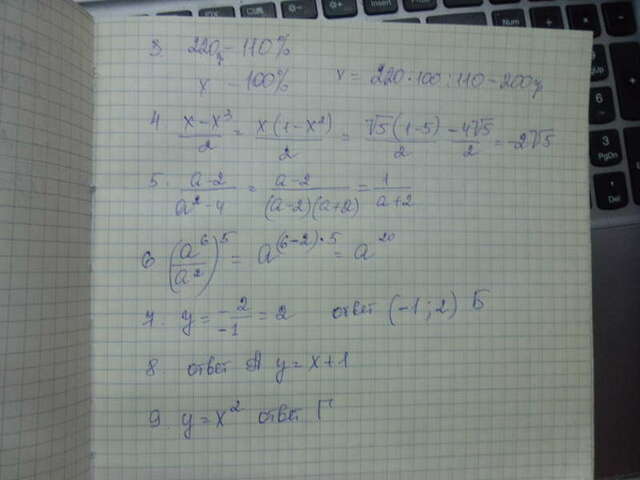 3 220р – 110%
x – 100% x = 220·100:110 = 200р
4 (x-x³)/2 = x(1-x²)/2 = √5(1-5)/2 = -4√5/2 = -2√5
5. (a-2)/(a²-4) = (a-2)/((a-2)(a+2)) = 1/(a+2)
6 (a⁶/a²)⁵ = a^((6-2)·5) = a²⁰
7. y = -2/-1 = 2 ответ (-1; 2) Б
8 ответ А y = x+1
9 y = x² ответ Г
Num
6
3
PgDn
1
Del